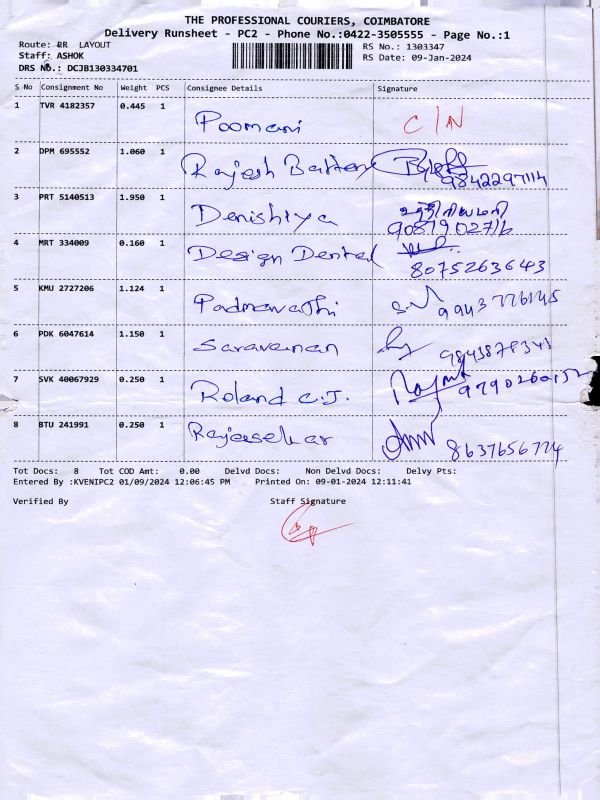 THE PROFESSIONAL COURIERS, COIMBATORE
Delivery Runsheet - PC2 - Phone No.:0422-3505555 - Page No.:1
Route: RR LAYOUT RS No.: 1303347
Staff: ASHOK RS Date: 09-Jan-2024
DRS No.: DCJB130334701
S No Consignment No Weight PCS Consignee Details Signature
1 TVR 4182357 0.445 1 Poomani C/N
2 DPM 695552 1.060 1 Rajesh Battery 9842297114
3 PRT 5140513 1.950 1 Denishiya
9087902716
4 MRT 334009 0.160 1 Design Dental
8075263643
5 KMU 2727206 1.124 1 Padmavathi 9943776145
6 PDK 6047614 1.150 1 Saravanan
7 SVK 40067929 0.250 1 Roland C.J. 9790260152
8 BTU 241991 0.250 1 Rajasekar 8637656774
Tot Docs: 8 Tot COD Amt: 0.00 Delvd Docs: Non Delvd Docs: Delvy Pts:
Entered By :KVENIPC2 01/09/2024 12:06:45 PM Printed On: 09-01-2024 12:11:41
Verified By Staff Signature